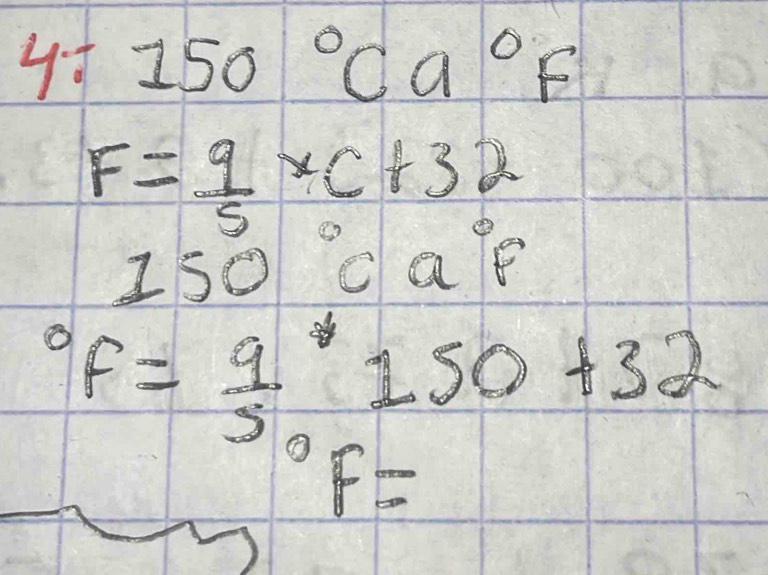 4- 150 °C a °F
F = 9/5 * C + 32
150 °C a °F
°F = 9/5 * 150 + 32
°F =